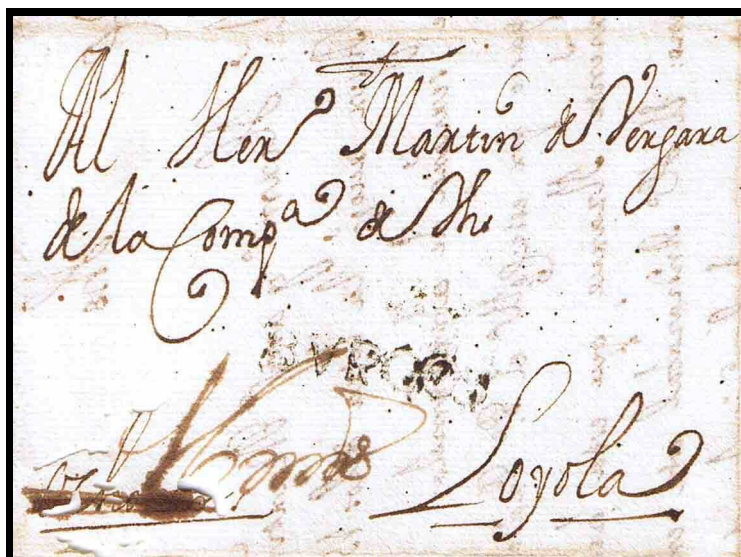 Al Herº Martin de Vergara
de la Compª de Jhs
BVRGOS
Loyola